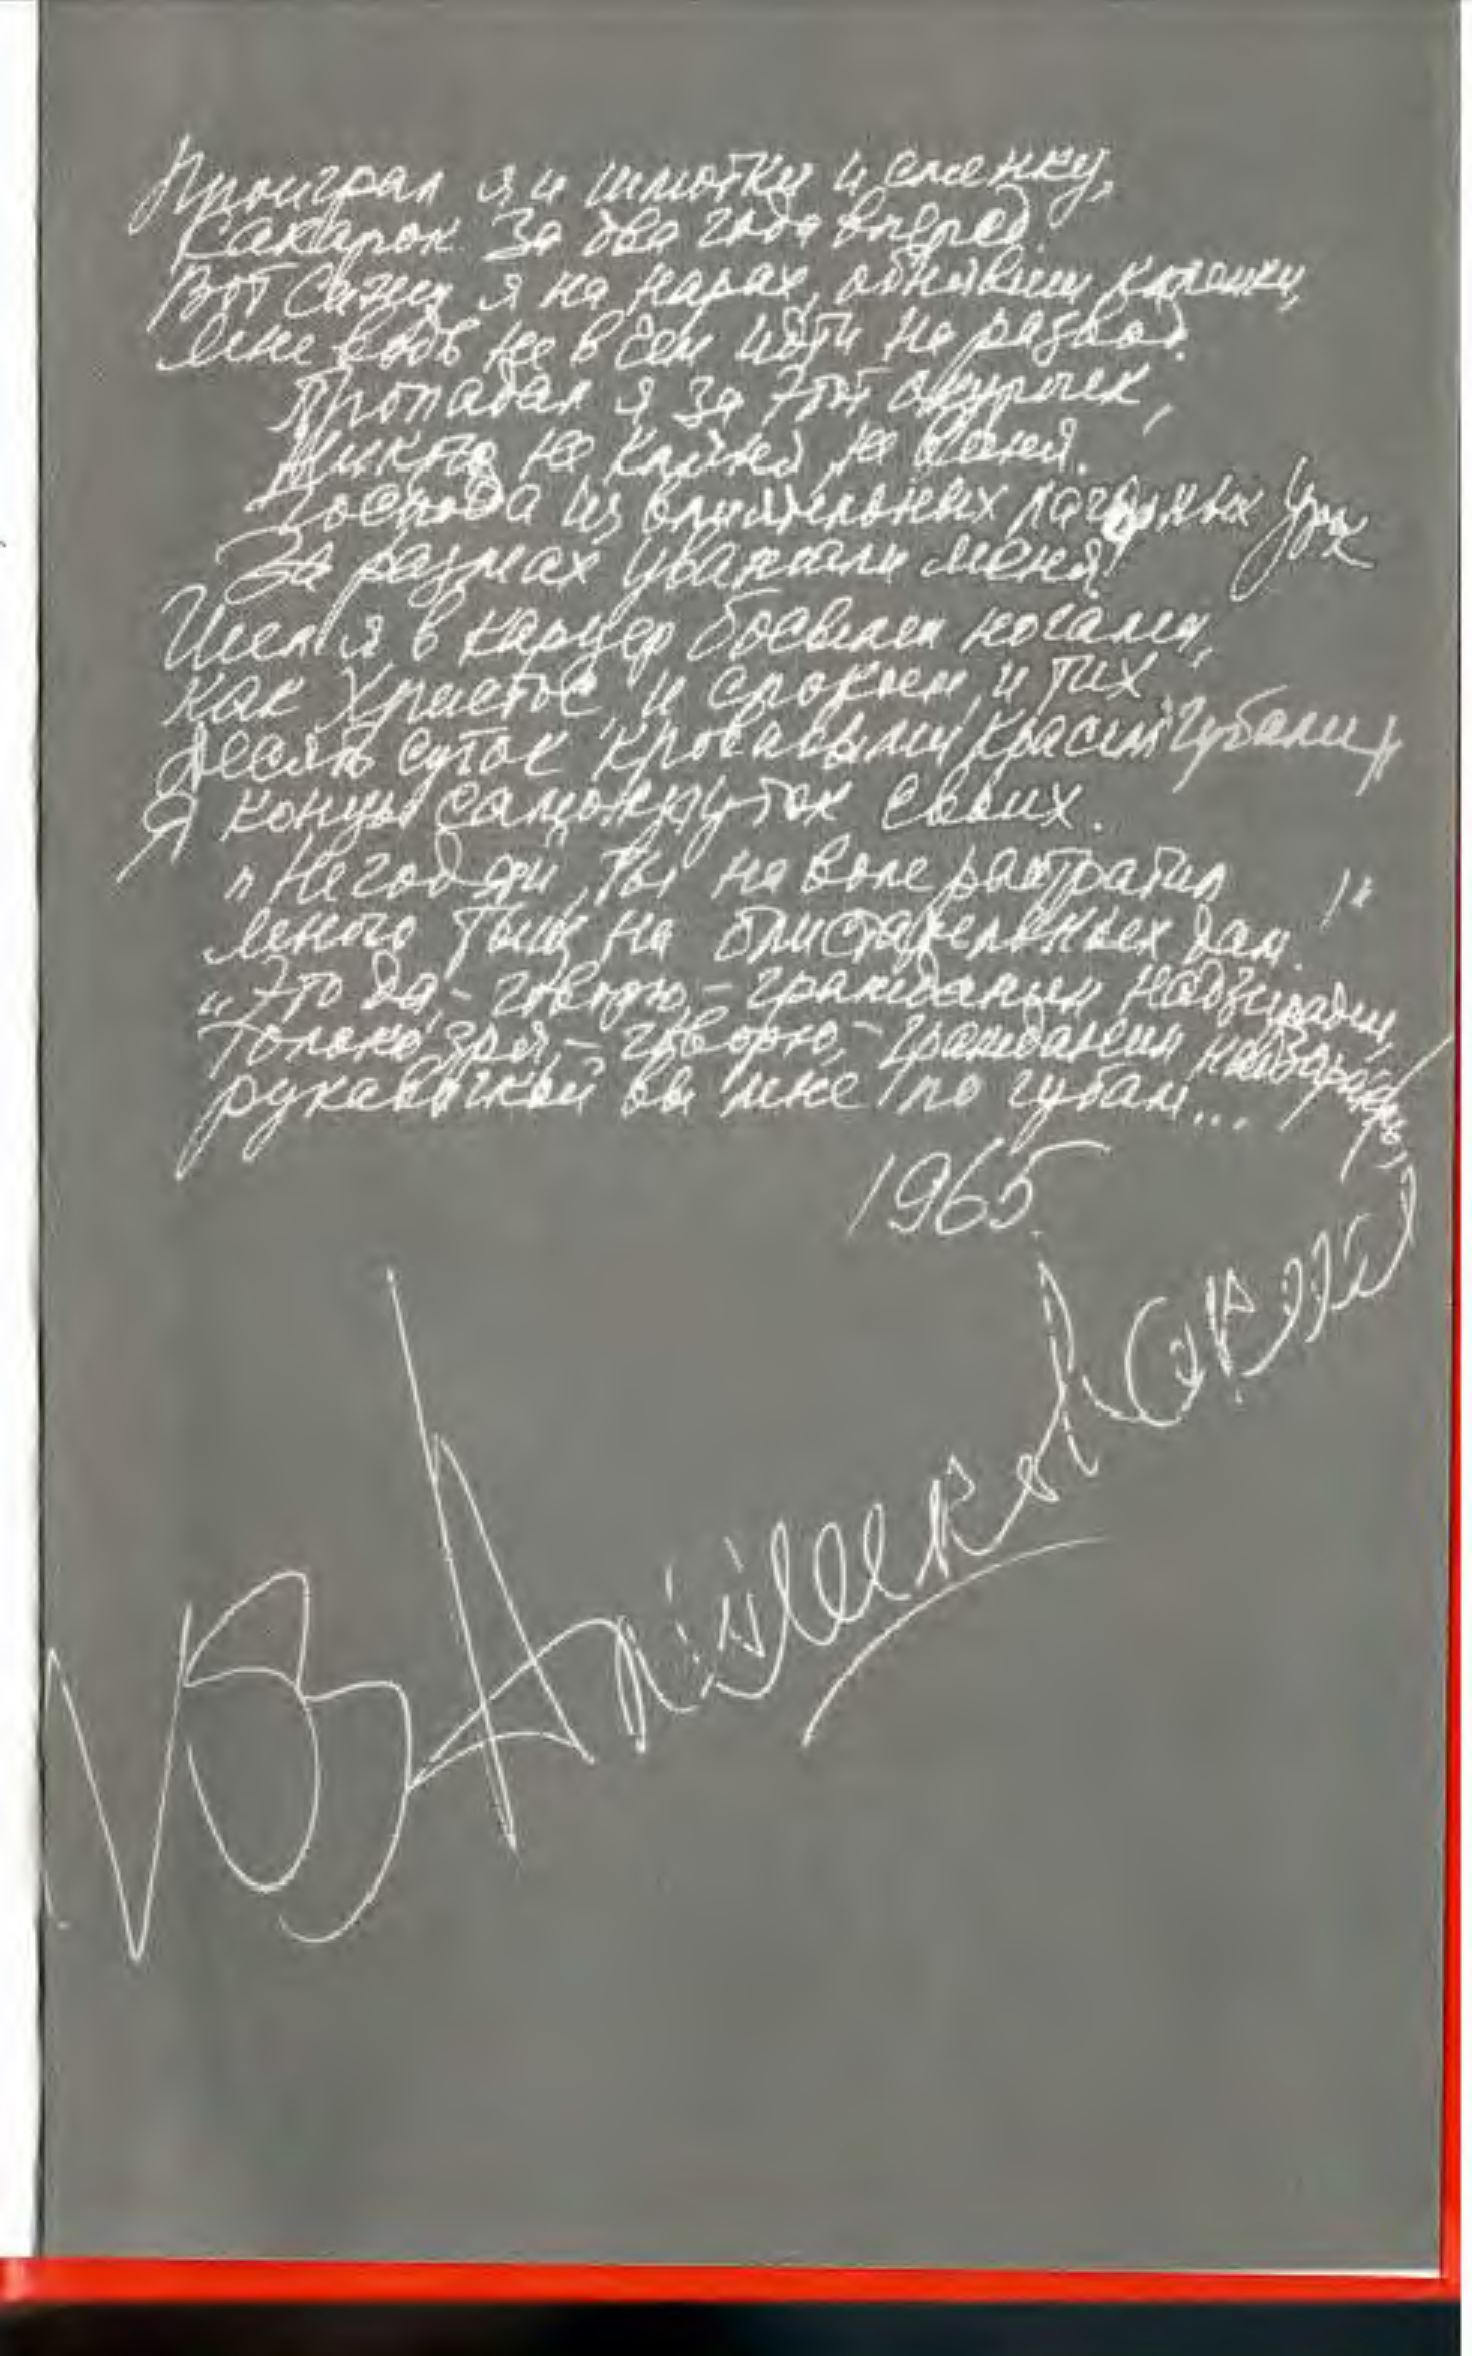 Проиграл я и шмотки и сменку,
Сахарок за два года вперед.
Вот сижу я на нарах, обнявши коленки,
Мне ведь не в чем идти на развод.
Пропадал я за этот окурочек,
Никого не кляня, не виня.
Господа из влиятельных лагерных урок
За размах уважали меня!
Шел я в карцер босыми ногами,
Как Христос, и спокоен, и тих
Десять суток кровавыми красил губами
Я концы самокруток своих.
„Негодяй, ты на воле растратил
много тыщ на блистательных дам!"
„Это да, - говорю, - гражданин надзиратель,
Только зря, - говорю, - гражданин надзиратель,
рукавичкой вы мне по губам...
1965